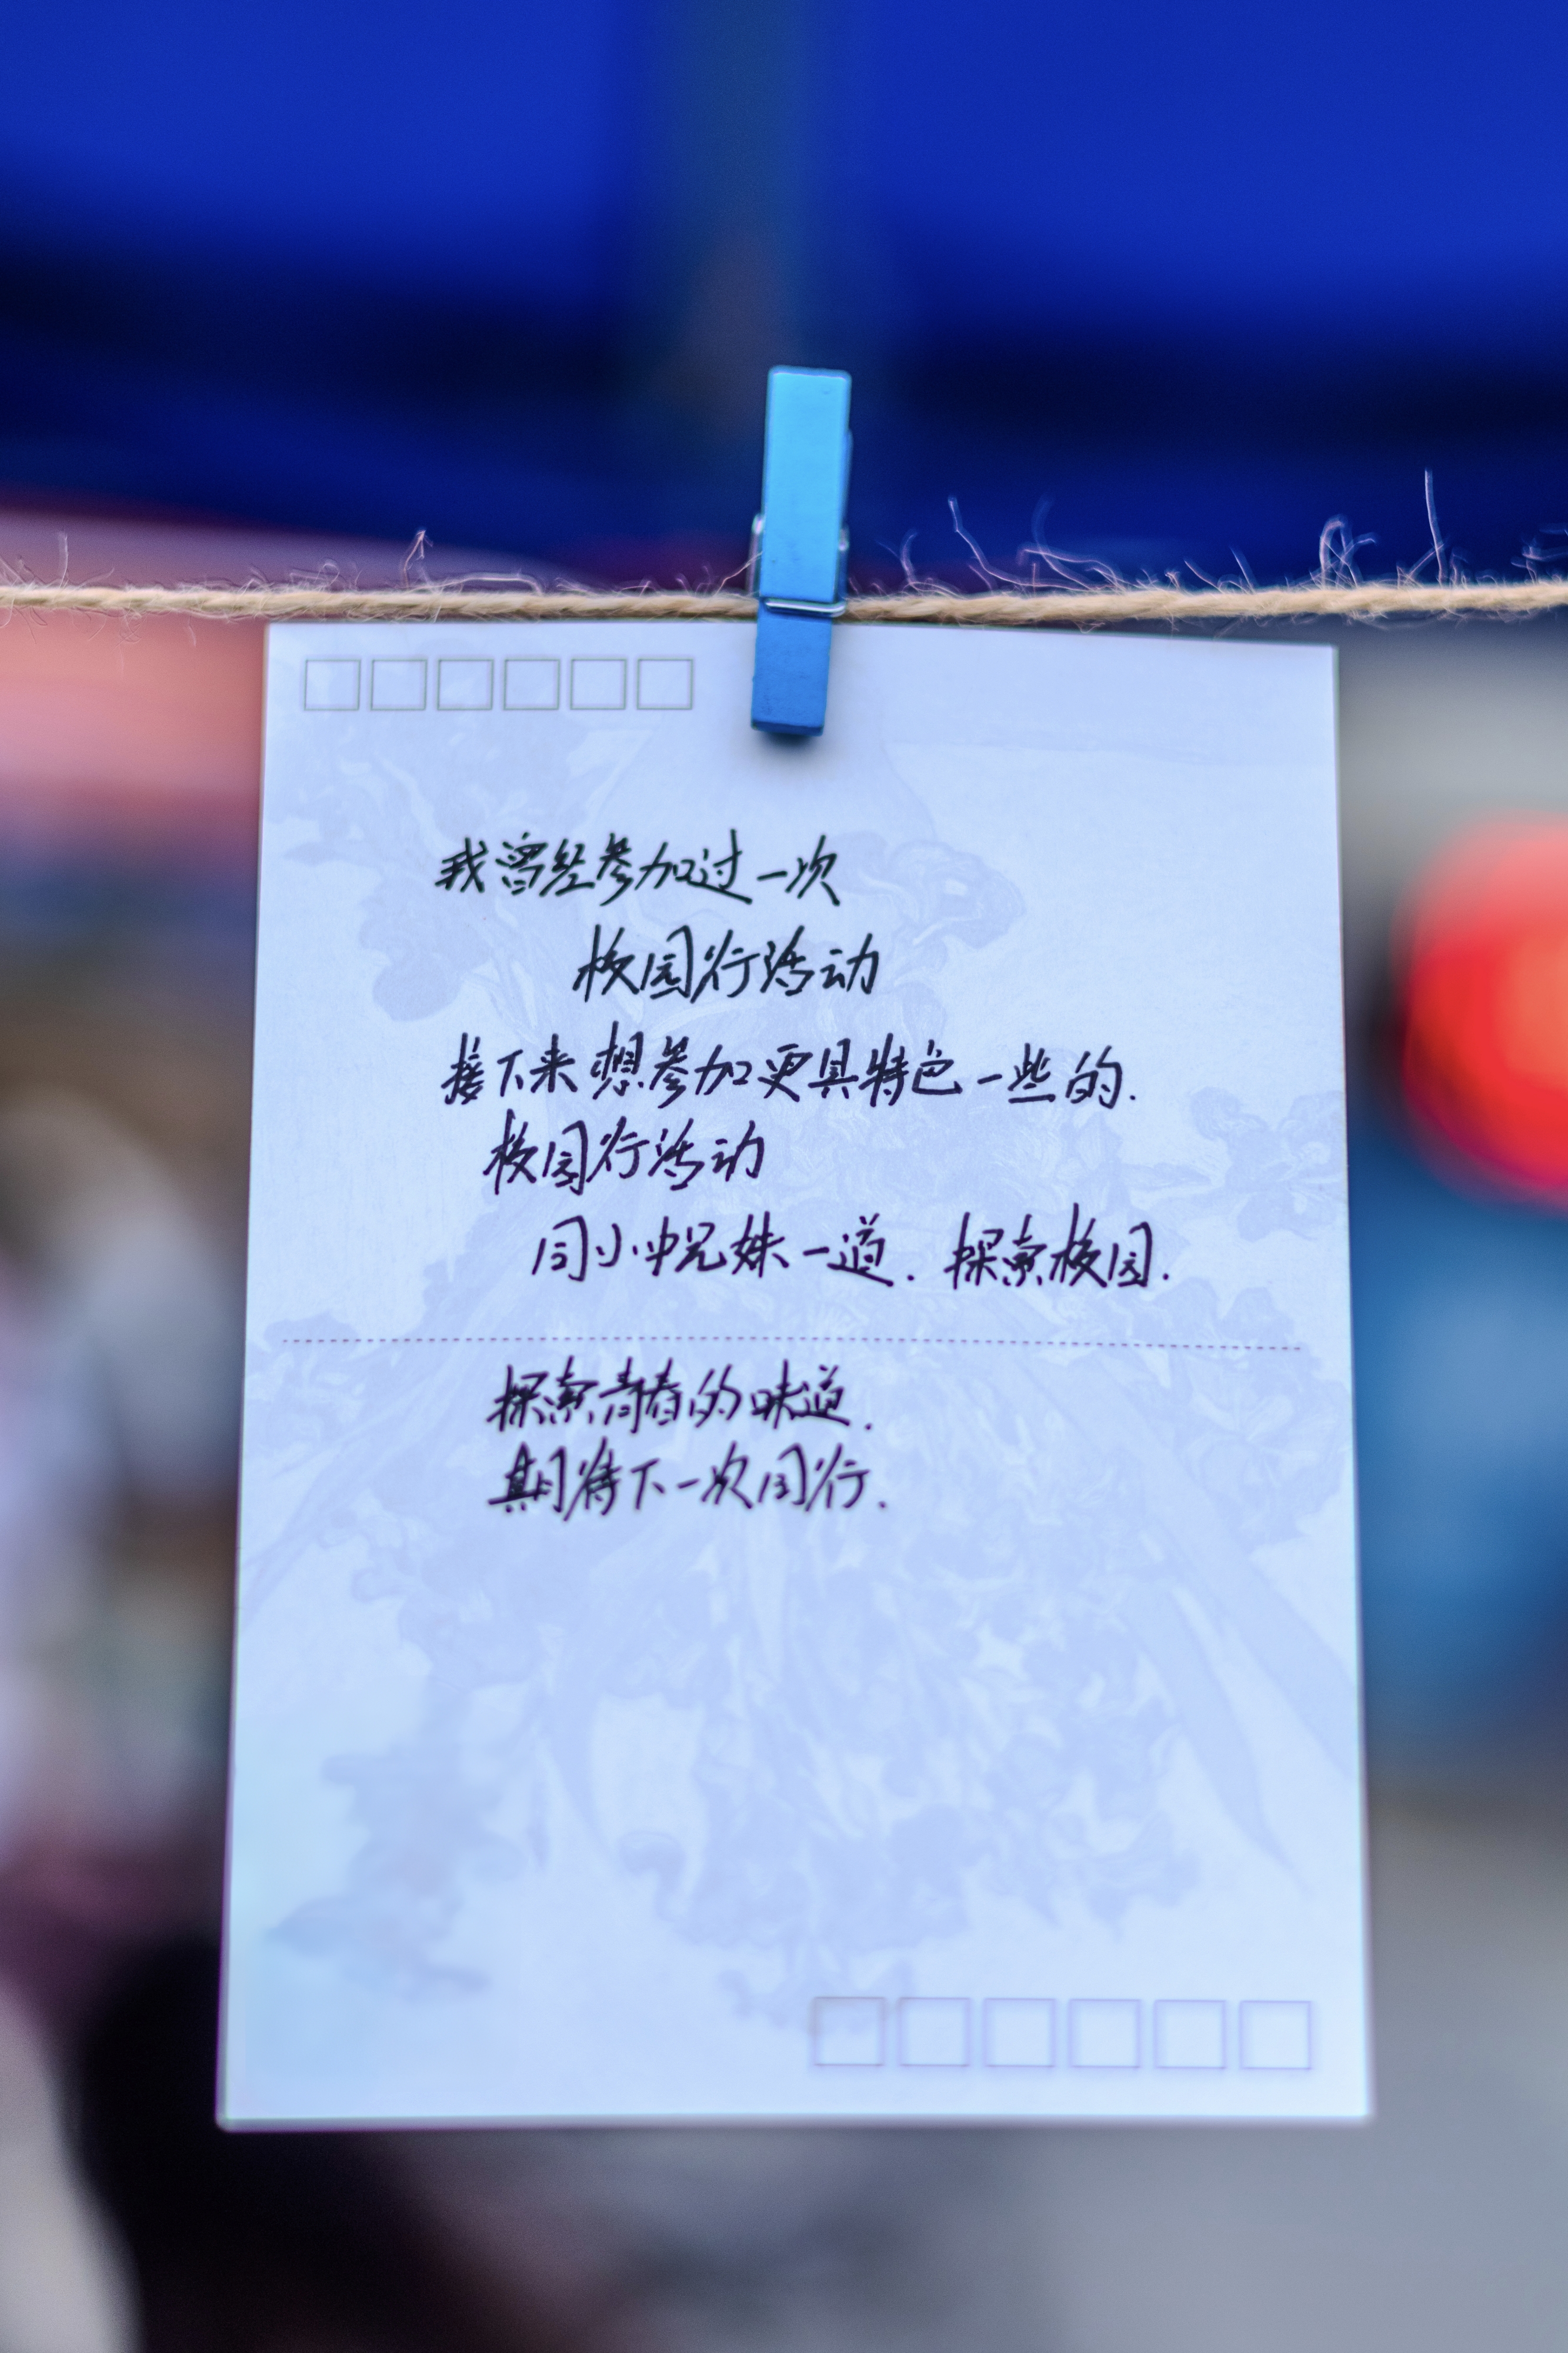 我曾经参加过一次
校园行活动
接下来想参加更具特色一些的.
校园行活动
同小中兄妹一道. 探索校园.
探索青春的味道.
期待下一次同行.